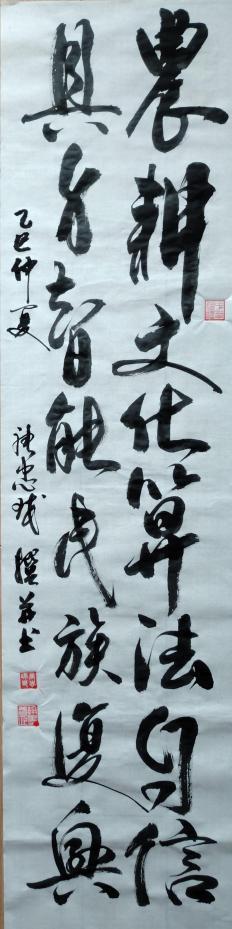 農耕文化算法自信
具身智能民族復興
乙巳仲夏
忠 撰并书